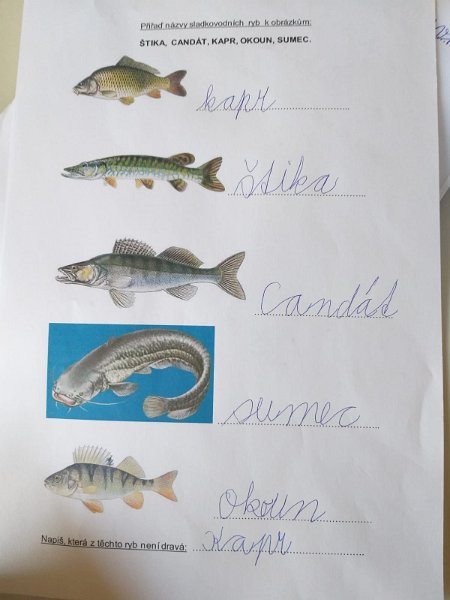 Přiřaď názvy sladkovodních ryb k obrázkům:
ŠTIKA, CANDÁT, KAPR, OKOUN, SUMEC.
kapr
štika
Candát
sumec
Okoun
Napiš, která z těchto ryb není dravá: Kapr